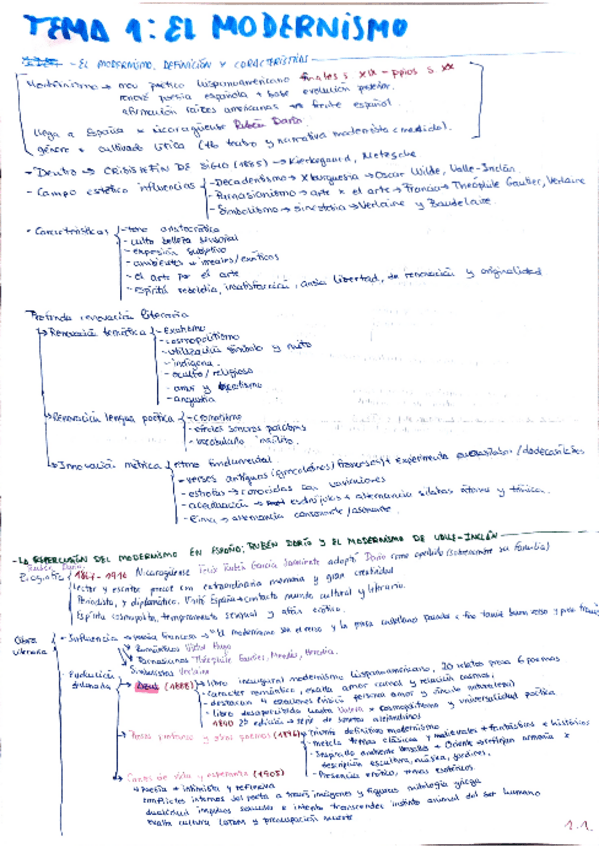 TEMA 1: EL MODERNISMO
- EL MODERNISMO. DEFINICIÓN Y CARACTERÍSTICAS
Modernismo → mov poético hispanoamericano finales s XIX - ppios s XX
renovó poesía española + base evolución poster.
afirmación raíces americanas frente español
llega a España x nicaragüense Rubén Darío
género + cultivado lírica (tb teatro y narrativa modernista < medida).
- Dentro → CRISIS DE FIN DE SIGLO (1885) → Kierkegaard, Nietzsche
- Campo estético influencias - Decadentismo → X burguesía → Oscar Wilde, Valle-Inclán
- Parnasianismo → arte x el arte → Francia → Théophile Gautier, Verlaine
- Simbolismo → sinestesia → Verlaine y Baudelaire
- Características - tono aristocrático
- culto belleza sensorial
- expresión subjetiva
- ambientes + irreales/exóticos
- el arte por el arte
- Espíritu rebeldía, insatisfacción, ansia libertad, de renovación y originalidad
Profunda renovación literaria
→ Renovación temática - Exotismo
- cosmopolitismo
- utilización símbolo y mito
- indígena
- oculto / religioso
- amor y erotismo
- angustia
→ Renovación lengua poética - cromatismo
- efectos sonoros palabras
- vocabulario insólito.
→ Innovación métrica - ritmo fundamental
- versos antiguos (grecolatinos/franceses) + experimenta /dodecasílabos
- estrofas → conocidas con variaciones
- acentuación → esdrújulas + alternancia sílabas átona y tónica.
- Rima → alternancia consonante/asonante.
- LA REPERCUSIÓN DEL MODERNISMO EN ESPAÑA: RUBÉN DARÍO Y EL MODERNISMO DE VALLE-INCLÁN
Rubén Darío
Biografía 1867-1916 Nicaragüense Félix Rubén García Sarmiento adoptó Darío como apellido (sobrenombre su familia)
Lector y escritor precoz con extraordinaria memoria y gran creatividad
Periodista, y diplomático. Visitó España → contacto mundo cultural y literario.
Espíritu cosmopolita, temperamento sensual y afán exótico.
Obra literaria - Influencia → poesía francesa → "El modernismo
→ Románticos Victor Hugo
→ Parnasianos Théophile Gautier, Mendès, Heredia.
Simbolista Verlaine
- Evolución → Azul (1888) → libro inaugural modernismo hispanoamericano, 20 relatos prosa 6 poemas
- carácter romántico, exalta amor carnal y relación cósmica,
- destacan 4 estaciones
- libro desapercibido hasta Valera x cosmopolitismo y universalidad poética
1890 2ª edición → serie de sonetos alejandrinos
→ Prosas profanas y otros poemas (1896) → Triunfo definitivo modernismo
- mezcla temas clásicos y medievales + fantásticos e históricos
- Inspirado ambiente + Oriente → reflejan armonía x
descripción escultura, música, jardines,
- Presencia erótico, temas esotéricos
→ Cantos de vida y esperanza (1905)
→ Poesía + intimista y reflexiva
conflictos internos del poeta a través imágenes y figuras mitología griega
dualidad impulsos sexuales e intento trascender instinto animal del ser humano
exalta cultura LATAM y preocupación muerte
1.1.